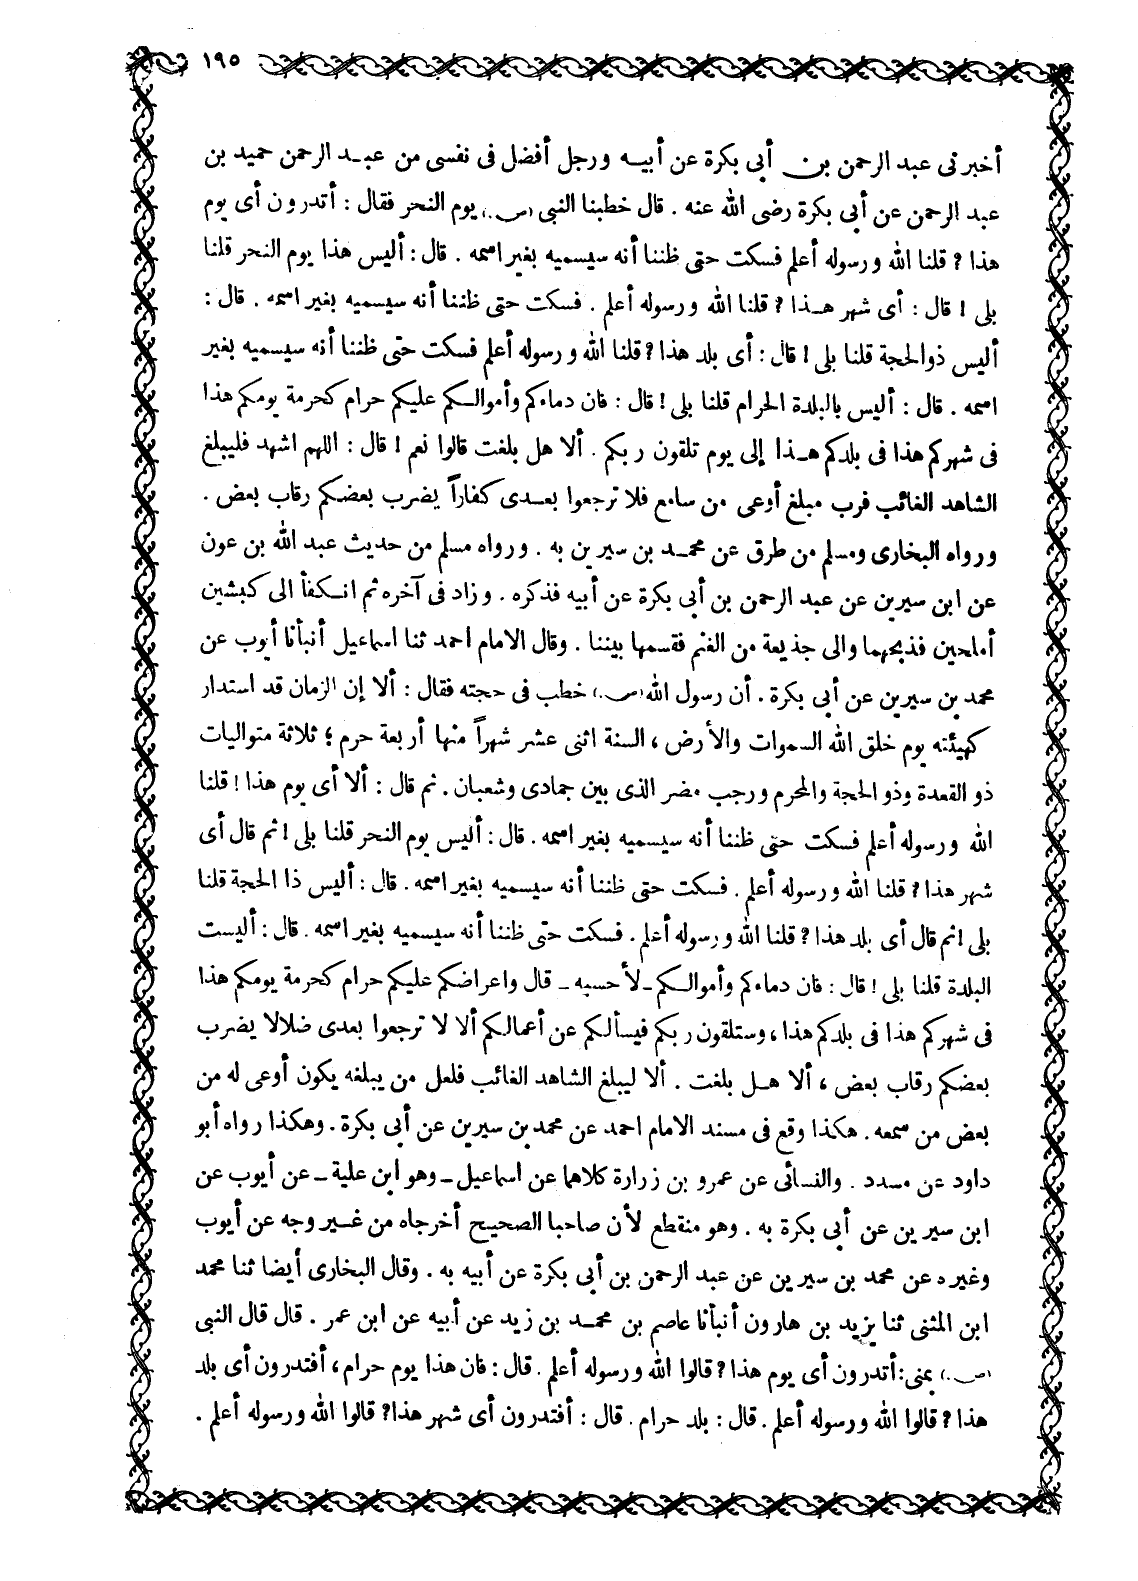 ١٩٥
أخبرنى عبد الرحمن بن أبى بكرة عن أبيه ورجل أفضل فى نفسى من عبد الرحمن حميد بن
عبد الرحمن عن أبى بكرة رضى الله عنه . قال خطبنا النبى (ص.) يوم النحر فقال : أتدرون أى يوم
هذا ? قلنا الله ورسوله أعلم فسكت حتى ظننا أنه سيسميه بغير اسمه . قال : أليس هذا يوم النحر قلنا
بلى ! قال : أى شهر هذا ? قلنا الله ورسوله أعلم . فسكت حتى ظننا أنه سيسميه بغير اسمه . قال :
أليس ذوالحجة قلنا بلى ! قال : أى بلد هذا ? قلنا الله ورسوله أعلم فسكت حتى ظننا أنه سيسميه بغير
اسمه . قال : أليس بالبلدة الحرام قلنا بلى ! قال : فان دماءكم وأموالكم عليكم حرام كحرمة يومكم هذا
فى شهركم هذا فى بلدكم هذا إلى يوم تلقون ربكم . ألا هل بلغت قالوا نعم ! قال : اللهم اشهد فليبلغ
الشاهد الغائب فرب مبلغ أوعى من سامع فلا ترجعوا بعدى كفاراً يضرب بعضكم رقاب بعض .
ورواه البخارى ومسلم من طرق عن محمد بن سيرين به . ورواه مسلم من حديث عبد الله بن عون
عن ابن سيرين عن عبد الرحمن بن أبى بكرة عن أبيه فذكره . وزاد فى آخره ثم انكفأ الى كبشين
أملحين فذبحهما والى جذيعة من الغنم فقسمها بيننا . وقال الامام احمد ثنا اسماعيل أنبأنا أيوب عن
محمد بن سيرين عن أبى بكرة . أن رسول الله (ص.) خطب فى حجته فقال : ألا إن الزمان قد استدار
كهيئته يوم خلق الله السموات والأرض ، السنة اثنى عشر شهراً منها أربعة حرم ؛ ثلاثة متواليات
ذو القعدة وذو الحجة والمحرم ورجب مضر الذى بين جمادى وشعبان . ثم قال : ألا أى يوم هذا ! قلنا
الله ورسوله أعلم فسكت حتى ظننا أنه سيسميه بغير اسمه . قال : أليس يوم النحر قلنا بلى ! ثم قال أى
شهر هذا ? قلنا الله ورسوله أعلم . فسكت حتى ظننا أنه سيسميه بغير اسمه . قال : أليس ذا الحجة قلنا
بلى ! ثم قال أى بلد هذا ? قلنا الله ورسوله أعلم . فسكت حتى ظننا أنه سيسميه بغير اسمه . قال : أليست
البلدة قلنا بلى ! قال : فان دماءكم وأموالكم ـ لأحسبه ـ قال واعراضكم عليكم حرام كحرمة يومكم هذا
فى شهركم هذا فى بلدكم هذا ، وستلقون ربكم فيسألكم عن أعمالكم ألا لا ترجعوا بعدى ضلالا يضرب
بعضكم رقاب بعض ، ألا هل بلغت . ألا ليبلغ الشاهد الغائب فلعل من يبلغه يكون أوعى له من
بعض من سمعه . هكذا وقع فى مسند الامام احمد عن محمد بن سيرين عن أبى بكرة . وهكذا رواه أبو
داود عن مسدد . والنسائى عن عمرو بن زرارة كلاهما عن اسماعيل ـ وهو ابن علية ـ عن أيوب عن
ابن سيرين عن أبى بكرة به . وهو منقطع لأن صاحبا الصحيح أخرجاه من غير وجه عن أيوب
وغيره عن محمد بن سيرين عن عبد الرحمن بن أبى بكرة عن أبيه به . وقال البخارى أيضا ثنا محمد
ابن المثنى ثنا يزيد بن هارون أنبأنا عاصم بن محمد بن زيد عن أبيه عن ابن عمر . قال قال النبى
(ص.) بمنى : أتدرون أى يوم هذا ? قالوا الله ورسوله أعلم . قال : فان هذا يوم حرام ، أفتدرون أى بلد
هذا ? قالوا الله ورسوله أعلم . قال : بلد حرام . قال : أفتدرون أى شهر هذا ? قالوا الله ورسوله أعلم .